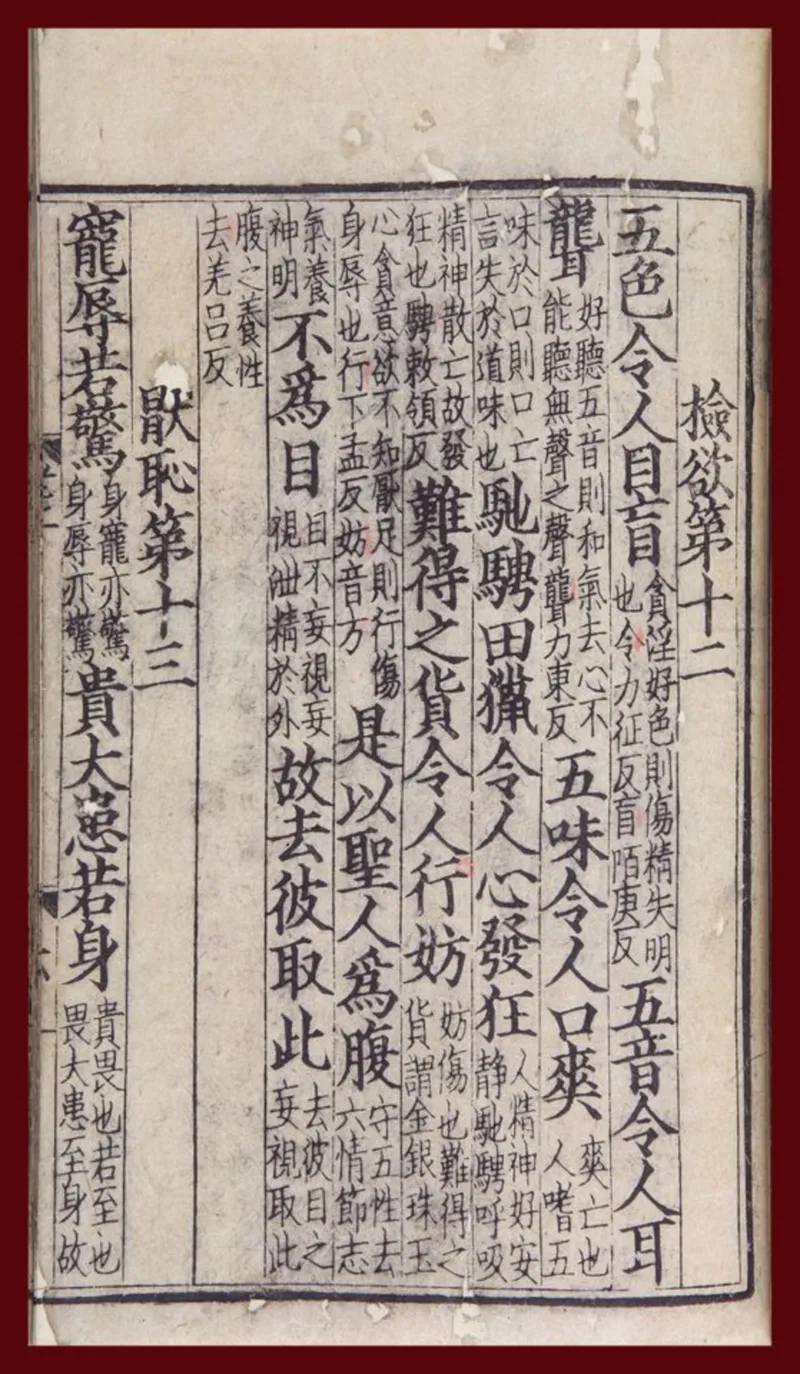 撿欲第十二
五色令人目盲貪淫好色則傷精失明也令力征反盲陌庚反五音令人耳
聾好聽五音則和氣去心不能聽無聲之聲聾力東反五味令人口爽爽亡也人嗜五
味於口則口亡言失於道味也馳騁田獵令人心發狂人精神好安静馳騁呼吸
精神散亡故發狂也騁敕領反難得之貨令人行妨妨傷也難得之貨謂金銀珠玉
心貪意欲不知厭足則行傷身辱也行下孟反妨音方是以聖人爲腹守五性去六情節志
氣養神明不爲目目不妄視妄視泄精於外故去彼取此去彼目之妄視取此
腹之養性去羌吕反
猒恥第十三
寵辱若驚身寵亦驚身辱亦驚貴大患若身貴畏也若至也畏大患至身故